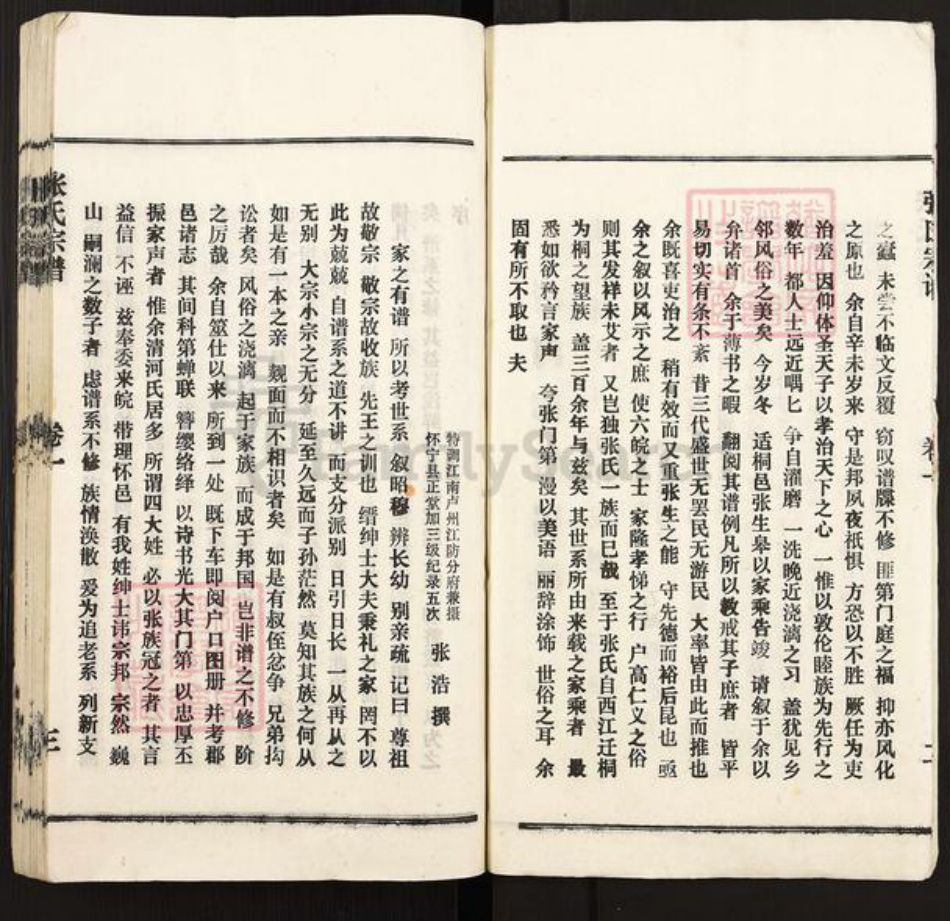 之蠹 未尝不临文反覆 窃叹谱牒不修 匪第门庭之福 抑亦风化
之原也 余自辛未岁来 守是邦夙夜祇惧 方恐以不胜 厥任为吏
治羞 因仰体圣天子以孝治天下之心 一惟以敦伦睦族为先行之
数年 都人士远近喁匕 争自濯磨 一洗晚近浇漓之习 盖犹见乡
邻风俗之美矣 今岁冬 适桐邑张生皋以家乘告竣 请叙于余以
弁诸首 余于薄书之暇 翻阅其谱例凡所以教戒其子庶者 皆平
易切实有条不紊 昔三代盛世无罢民无游民 大率皆由此而推也
余既喜吏治之 稍有效而又重张生之能 守先德而裕后昆也 亟
余之叙以风示之庶 使六皖之士 家隆孝悌之行 户高仁义之俗
则其发祥未艾者 又岂独张氏一族而巳哉 至于张氏自西江迁桐
为桐之望族 盖三百余年与兹矣 其世系所由来载之家乘者 最
悉如欲矜言家声 夸张门第 漫以美语 丽辞涂饰 世俗之耳 余
固有所不取也 夫
二
特调江南卢州江防分府兼摄
怀宁县正堂加三级纪录五次 张浩 撰
家之有谱 所以考世系 叙昭穆 辨长幼 别亲疏 记曰 尊祖
故敬宗 敬宗故收族 先王之训也 缙绅士大夫秉礼之家 罔不以
此为兢兢 自谱系之道不讲 而支分派别 日引日长 一从再从之
无别 大宗小宗之无分 延至久远而子孙茫然 莫知其族之何从
如是有一本之亲 觌面而不相识者矣 如是有叔侄忿争 兄弟㧓
讼者矣 风俗之浇漓 起于家族 而成于邦国 岂非谱之不修 阶
之厉哉 余自筮仕以来 所到一处 既下车即阅户口图册 并考郡
邑诸志 其间科第蝉联 簪缨络绎 以诗书光大其门第 以忠厚丕
振家声者 惟余清河氏居多 所谓四大姓 必以张族冠之者 其言
益信 不诬 兹奉委来皖 带理怀邑 有我姓绅士讳宗邦 宗然 巍
山 嗣澜之数子者 虑谱系不修 族情涣散 爰为追老系 列新支
张氏宗谱 卷一 三